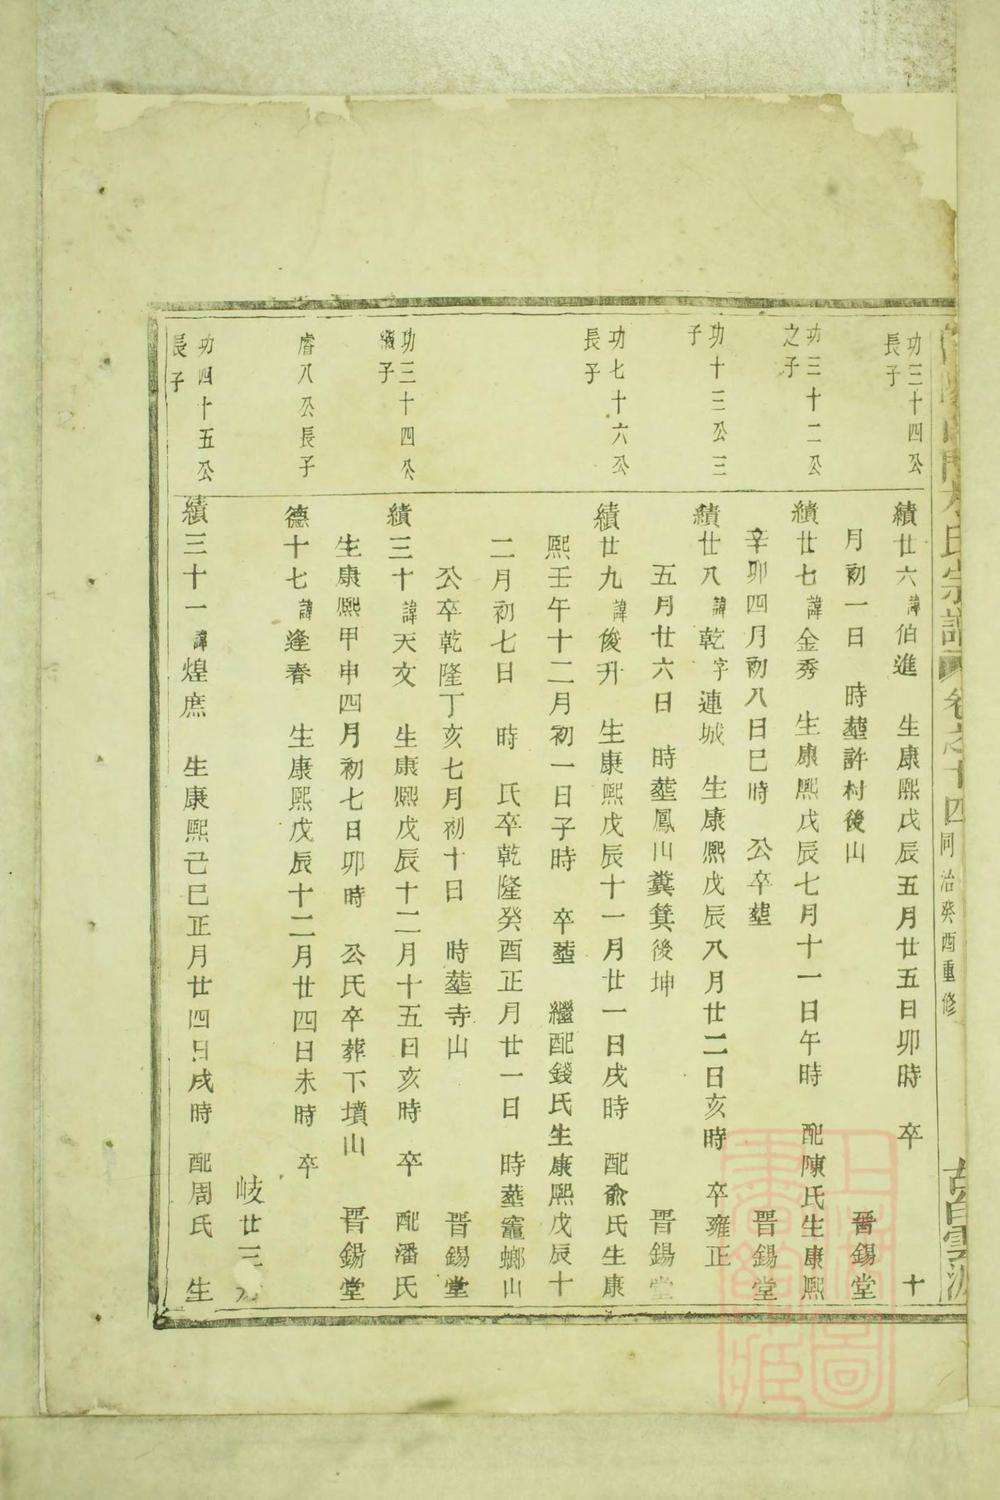 氏宗譜 卷之十四 同治癸酉重修 古白雲源
功三十四公
長子
績廿六諱伯進 生康熙戊辰五月廿五日卯時 卒 十
月初一日 時塟許村後山 晉錫堂
功三十二公
之子
績廿七諱金秀 生康熙戊辰七月十一日午時 配陳氏生康熙
辛卯四月初八日巳時 公卒塟 晉錫堂
功十三公三
子
績廿八諱乾字連城 生康熙戊辰八月廿二日亥時 卒雍正
五月廿六日 時塟鳳川糞箕後坤 晉錫堂
功七十六公
長子
績廿九諱俊升 生康熙戊辰十一月廿一日戌時 配俞氏生康
熙壬午十二月初一日子時 卒塟 繼配錢氏生康熙戊辰十
二月初七日 時 氏卒乾隆癸酉正月廿一日 時塟竈螂山
公卒乾隆丁亥七月初十日 時塟寺山 晉錫堂
功三十四公
績子
績三十諱天文 生康熙戊辰十二月十五日亥時 卒 配潘氏
生康熙甲申四月初七日卯時 公氏卒葬下墳山 晉錫堂
睿八公長子
德十七諱逢春 生康熙戊辰十二月廿四日未時 卒
岐廿三公
功四十五公
長子
績三十一諱煌庶 生康熙己巳正月廿四日戌時 配周氏 生